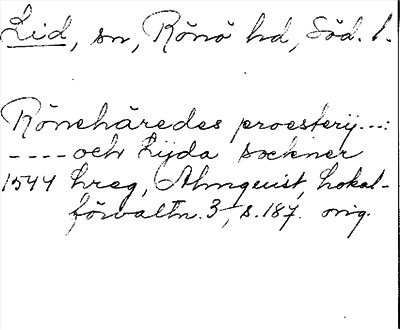 Lid, sn, Rönö hd, Söd. l.
Rönehäredes proesterij...:
---- och Lijda sockner
1544 hreg, Almquist, Lokal-
förvaltn. 3, s. 187. orig.